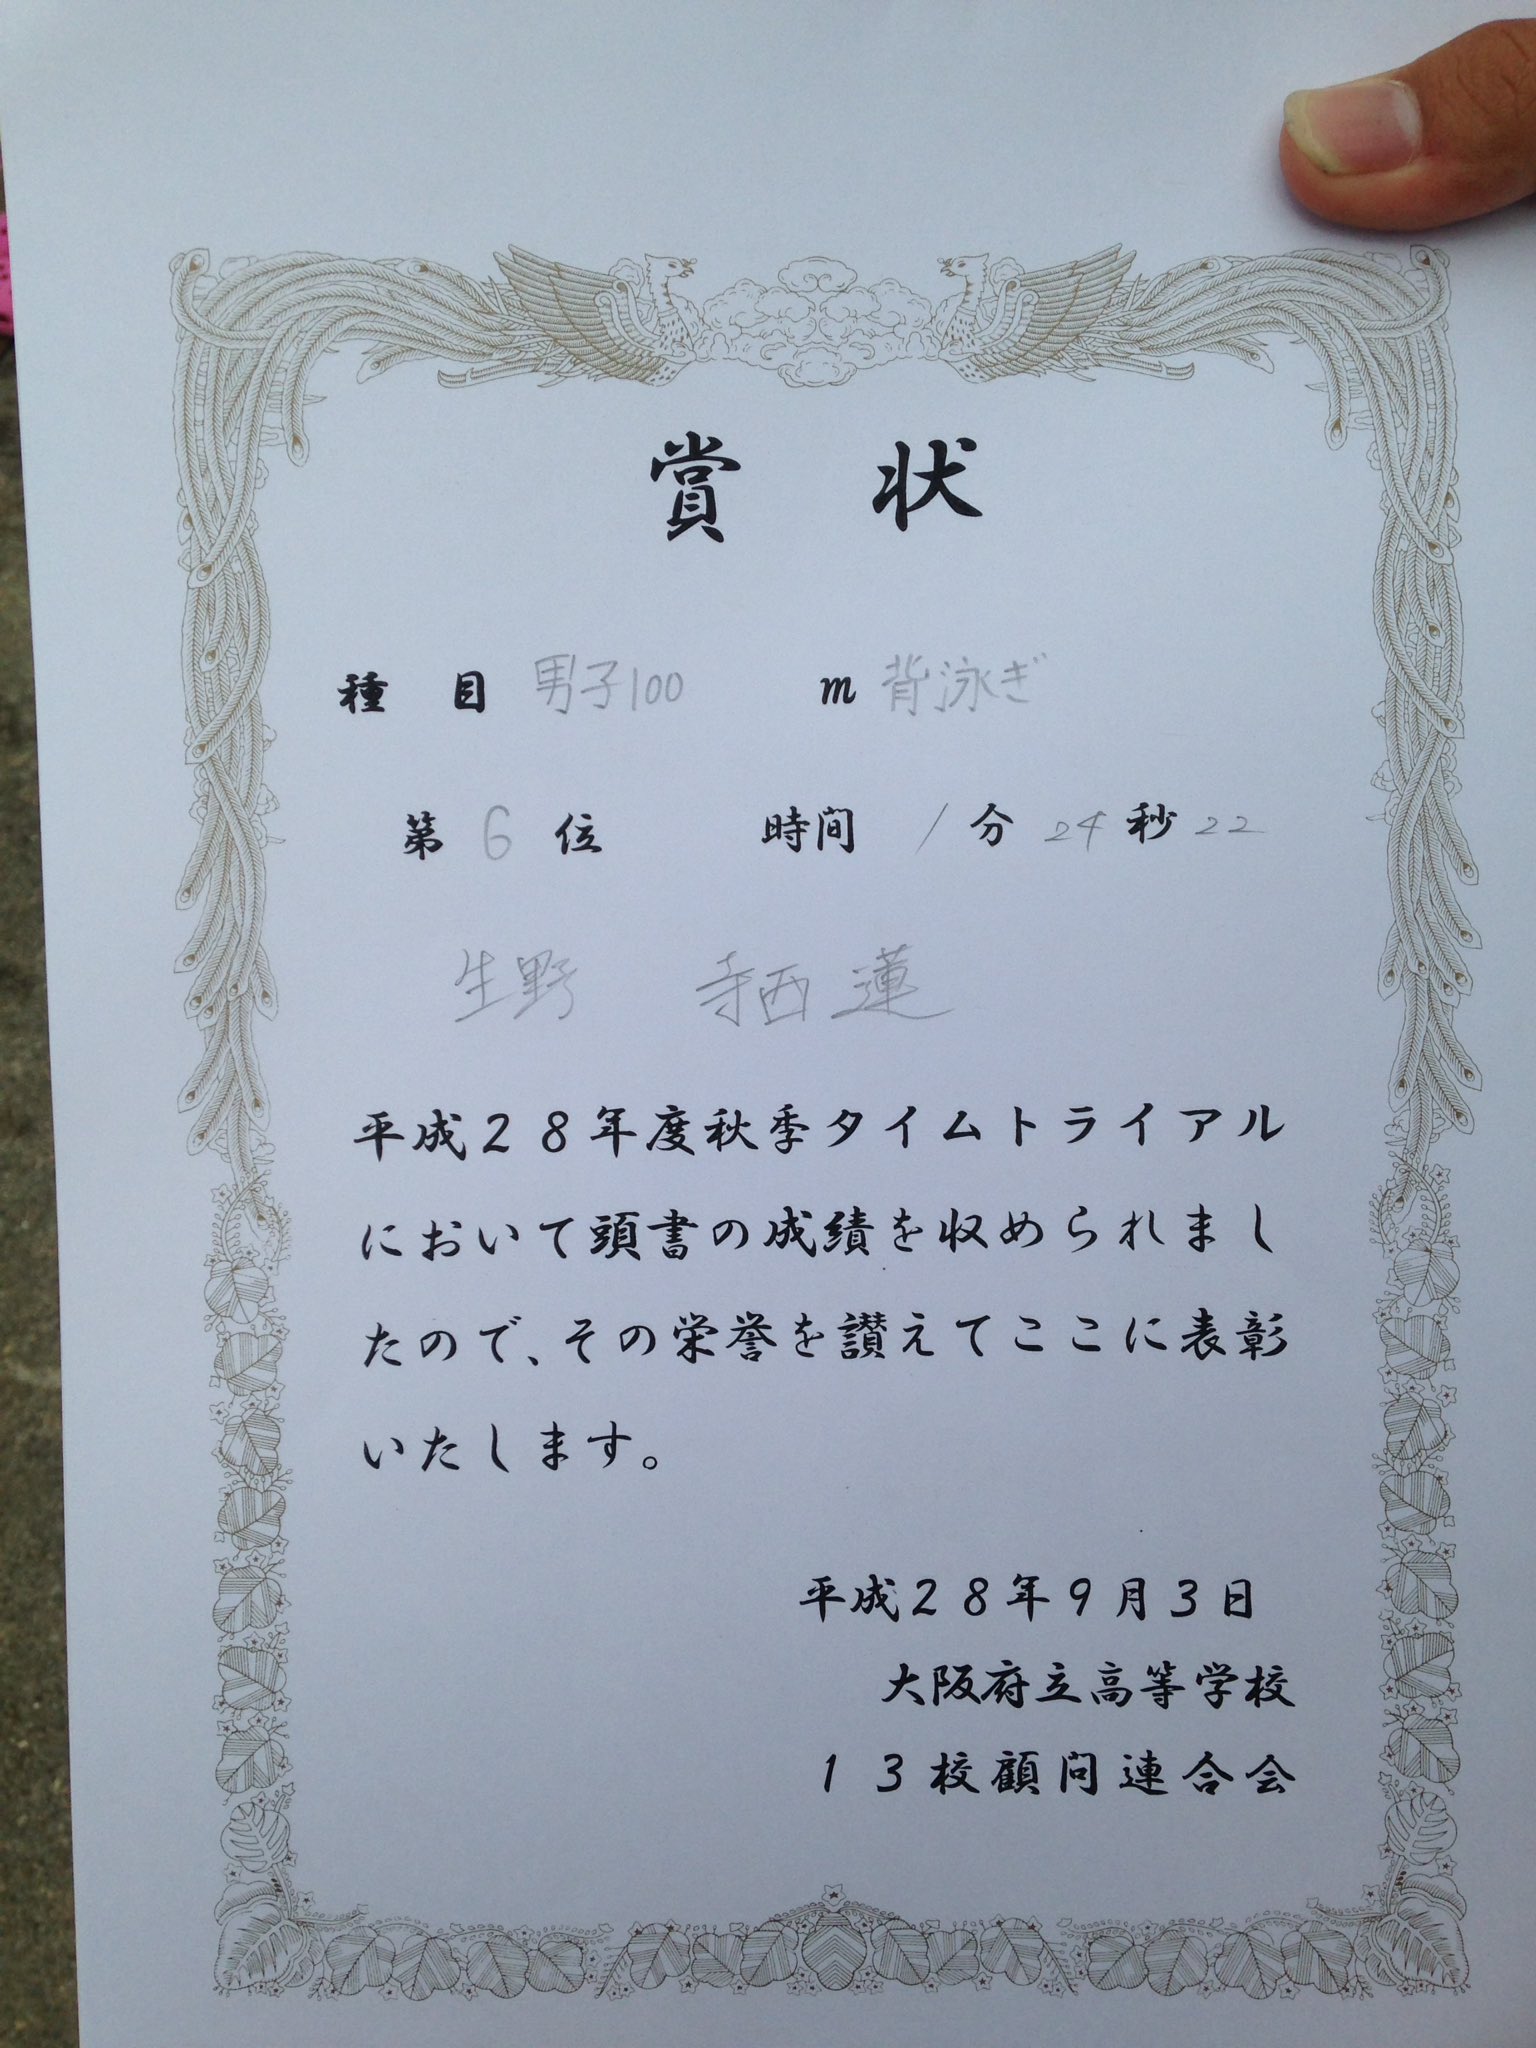 賞状
種目 男子100 m 背泳ぎ
第 6 位 時間 1 分 24 秒 22
生野 寺西 蓮
平成28年度秋季タイムトライアル
において頭書の成績を収められまし
たので、その栄誉を讃えてここに表彰
いたします。
平成28年9月3日
大阪府立高等学校
13校顧問連合会